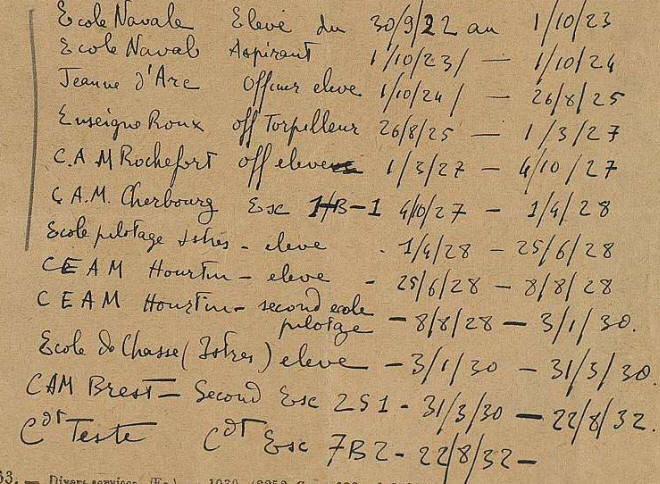 Ecole Navale Eleve du 30/9/22 au 1/10/23
Ecole Naval Aspirant 1/10/23/ — 1/10/24
Jeanne d'Arc Officier eleve 1/10/24/ — 26/8/25
Enseigne Roux off Torpilleur 26/8/25 — 1/3/27
C.A.M Rochefort off eleve 1/3/27 — 4/10/27
C.A.M. Cherbourg Esc 1B-1 4/10/27 — 1/4/28
Ecole pilotage Istres - eleve - 1/4/28 — 25/6/28
CEAM Hourtin - eleve - 25/6/28 — 8/8/28
CEAM Hourtin - second ecole
pilotage - 8/8/28 — 3/1/30.
Ecole de Chasse (Istres) eleve - 3/1/30 — 31/3/30.
CAM Brest — Second Esc 2S1 - 31/3/30 — 22/8/32.
Cdt Teste Cdt Esc 7B2 - 22/8/32 —
63. — Divers services